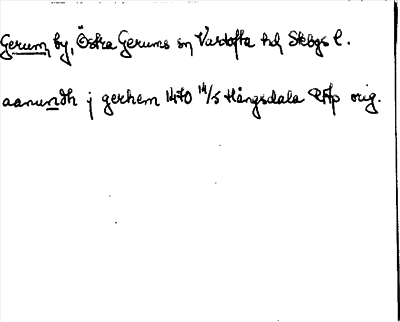 Gerum by, Östra Gerums sn Vartofta hd Skbgs l.
aanundh j gerhem 1470 14/5 Hångsdala RAp orig.